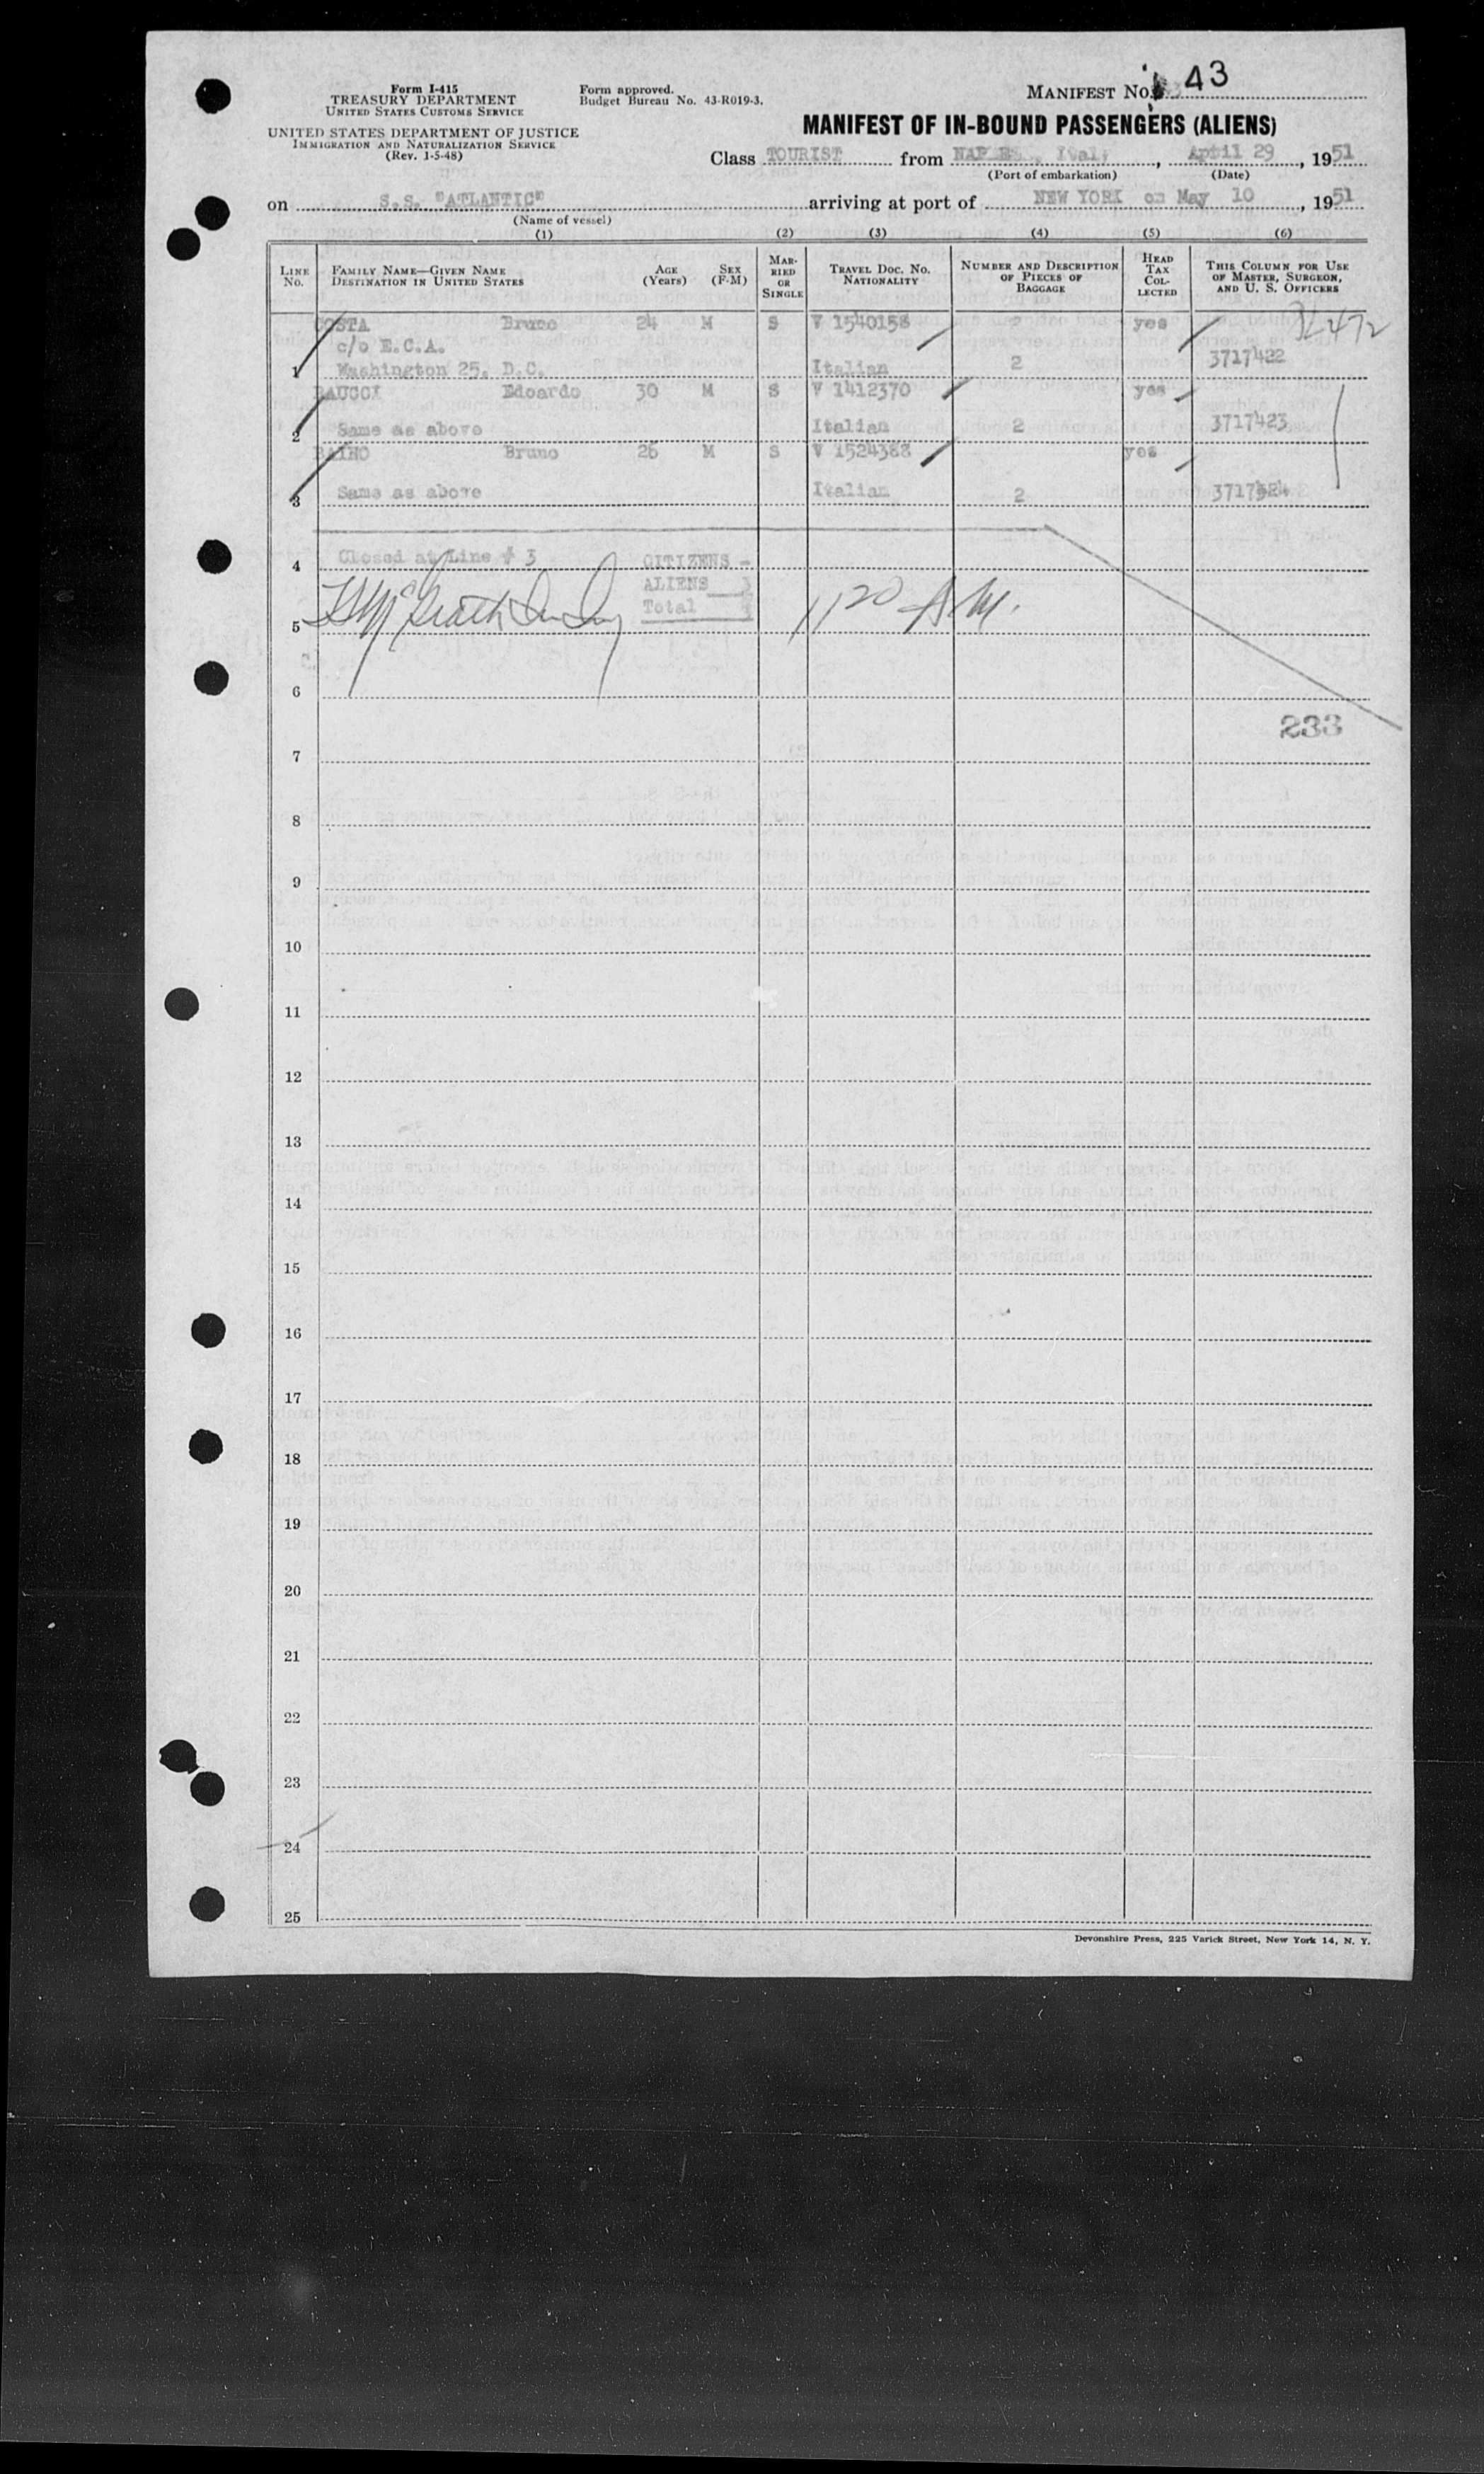 Form I-415
TREASURY DEPARTMENT
UNITED STATES CUSTOMS SERVICE
UNITED STATES DEPARTMENT OF JUSTICE
IMMIGRATION AND NATURALIZATION SERVICE
(Rev. 1-5-48)
Form approved.
Budget Bureau No. 43-R019-3.
MANIFEST No. 43
MANIFEST OF IN-BOUND PASSENGERS (ALIENS)
Class TOURIST from NAPLES, Italy, April 29, 1951
(Port of embarkation) (Date)
on S.S. "ATLANTIC" arriving at port of NEW YORK on May 10, 1951
(Name of vessel)
(1) (2) (3) (4) (5) (6)
LINE No.
FAMILY NAME—GIVEN NAME
DESTINATION IN UNITED STATES
AGE (Years)
SEX (F-M)
MARRIED OR SINGLE
TRAVEL DOC. NO.
NATIONALITY
NUMBER AND DESCRIPTION OF PIECES OF BAGGAGE
HEAD TAX COLLECTED
THIS COLUMN FOR USE OF MASTER, SURGEON, AND U. S. OFFICERS
COSTA Bruno 24 M S V 1540158 yes
c/o E.C.A.
1 Washington 25, D.C. Italian 2 3717422
Edoardo 30 M S V 1412370 yes
2 Same as above Italian 2 3717423
Bruno 26 M S V 1524388 yes
3 Same as above Italian 2
4 Closed at Line # 3 CITIZENS -
ALIENS 3
5 Total 1120 A.M.
6
233
7
8
9
10
11
12
13
14
15
16
17
18
19
20
21
22
23
24
25
Devonshire Press, 225 Varick Street, New York 14, N. Y.